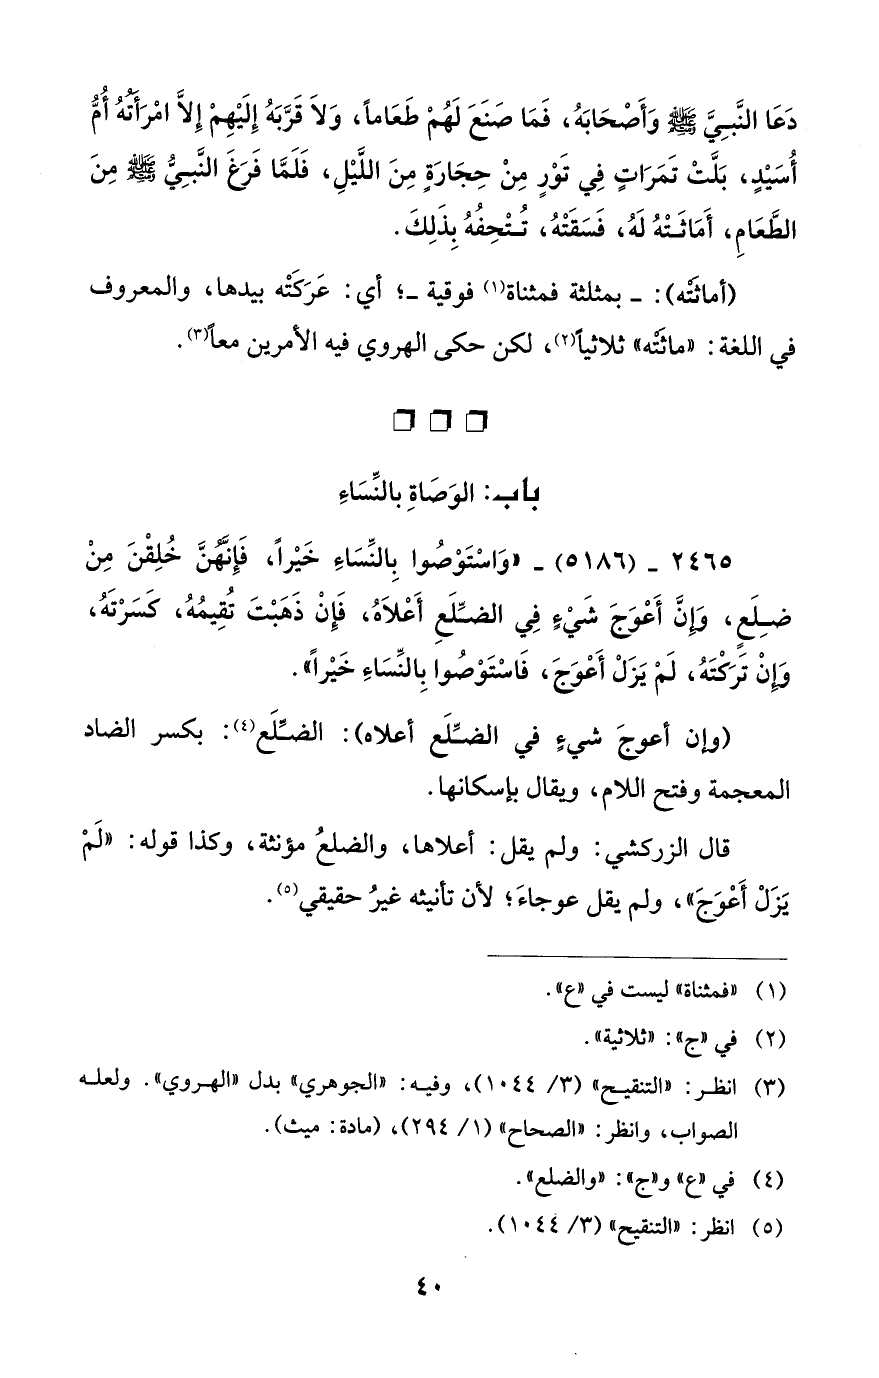 دَعَا النَّبِيَّ ﷺ وَأَصْحَابَهُ، فَمَا صَنَعَ لَهُمْ طَعَاماً، وَلاَ قَرَّبَهُ إِلَيْهِمْ إِلاَّ امْرَأَتُهُ أُمُّ
أُسَيْدٍ، بَلَّتْ تَمَرَاتٍ فِي تَوْرٍ مِنْ حِجَارَةٍ مِنَ اللَّيْلِ، فَلَمَّا فَرَغَ النَّبِيُّ ﷺ مِنَ
الطَّعَامِ، أَمَاثَتْهُ لَهُ، فَسَقَتْهُ، تُتْحِفُهُ بِذَلِكَ.
(أماثَتْه): ـ بمثلثة فمثناة(١) فوقية ـ؛ أي: عَرَكَتْه بيدها، والمعروف
في اللغة: «ماثَتْه» ثلاثياً(٢)، لكن حكى الهروي فيه الأمرين معاً(٣).
باب: الوَصَاةِ بِالنِّسَاءِ
٢٤٦٥ ـ (٥١٨٦) ـ «وَاسْتَوْصُوا بِالنِّسَاءِ خَيْراً، فَإِنَّهُنَّ خُلِقْنَ مِنْ
ضِلَعٍ، وَإِنَّ أَعْوَجَ شَيْءٍ فِي الضِّلَعِ أَعْلاَهُ، فَإِنْ ذَهَبْتَ تُقِيمُهُ، كَسَرْتَهُ،
وَإِنْ تَرَكْتَهُ، لَمْ يَزَلْ أَعْوَجَ، فَاسْتَوْصُوا بِالنِّسَاءِ خَيْراً».
(وإن أعوجَ شيءٍ في الضِّلَع أعلاه): الضِّلَع(٤): بكسر الضاد
المعجمة وفتح اللام، ويقال بإسكانها.
قال الزركشي: ولم يقل: أعلاها، والضلعُ مؤنثة، وكذا قوله: «لَمْ
يَزَلْ أَعْوَجَ»، ولم يقل عوجاءَ؛ لأن تأنيثه غيرُ حقيقي(٥).
(١) «فمثناة» ليست في «ع».
(٢) في «ج»: «ثلاثية».
(٣) انظر: «التنقيح» (٣/ ١٠٤٤)، وفيه: «الجوهري» بدل «الهروي». ولعله
الصواب، وانظر: «الصحاح» (١/ ٢٩٤)، (مادة: ميث).
(٤) في «ع» و«ج»: «والضلع».
(٥) انظر: «التنقيح» (٣/ ١٠٤٤).
٤٠